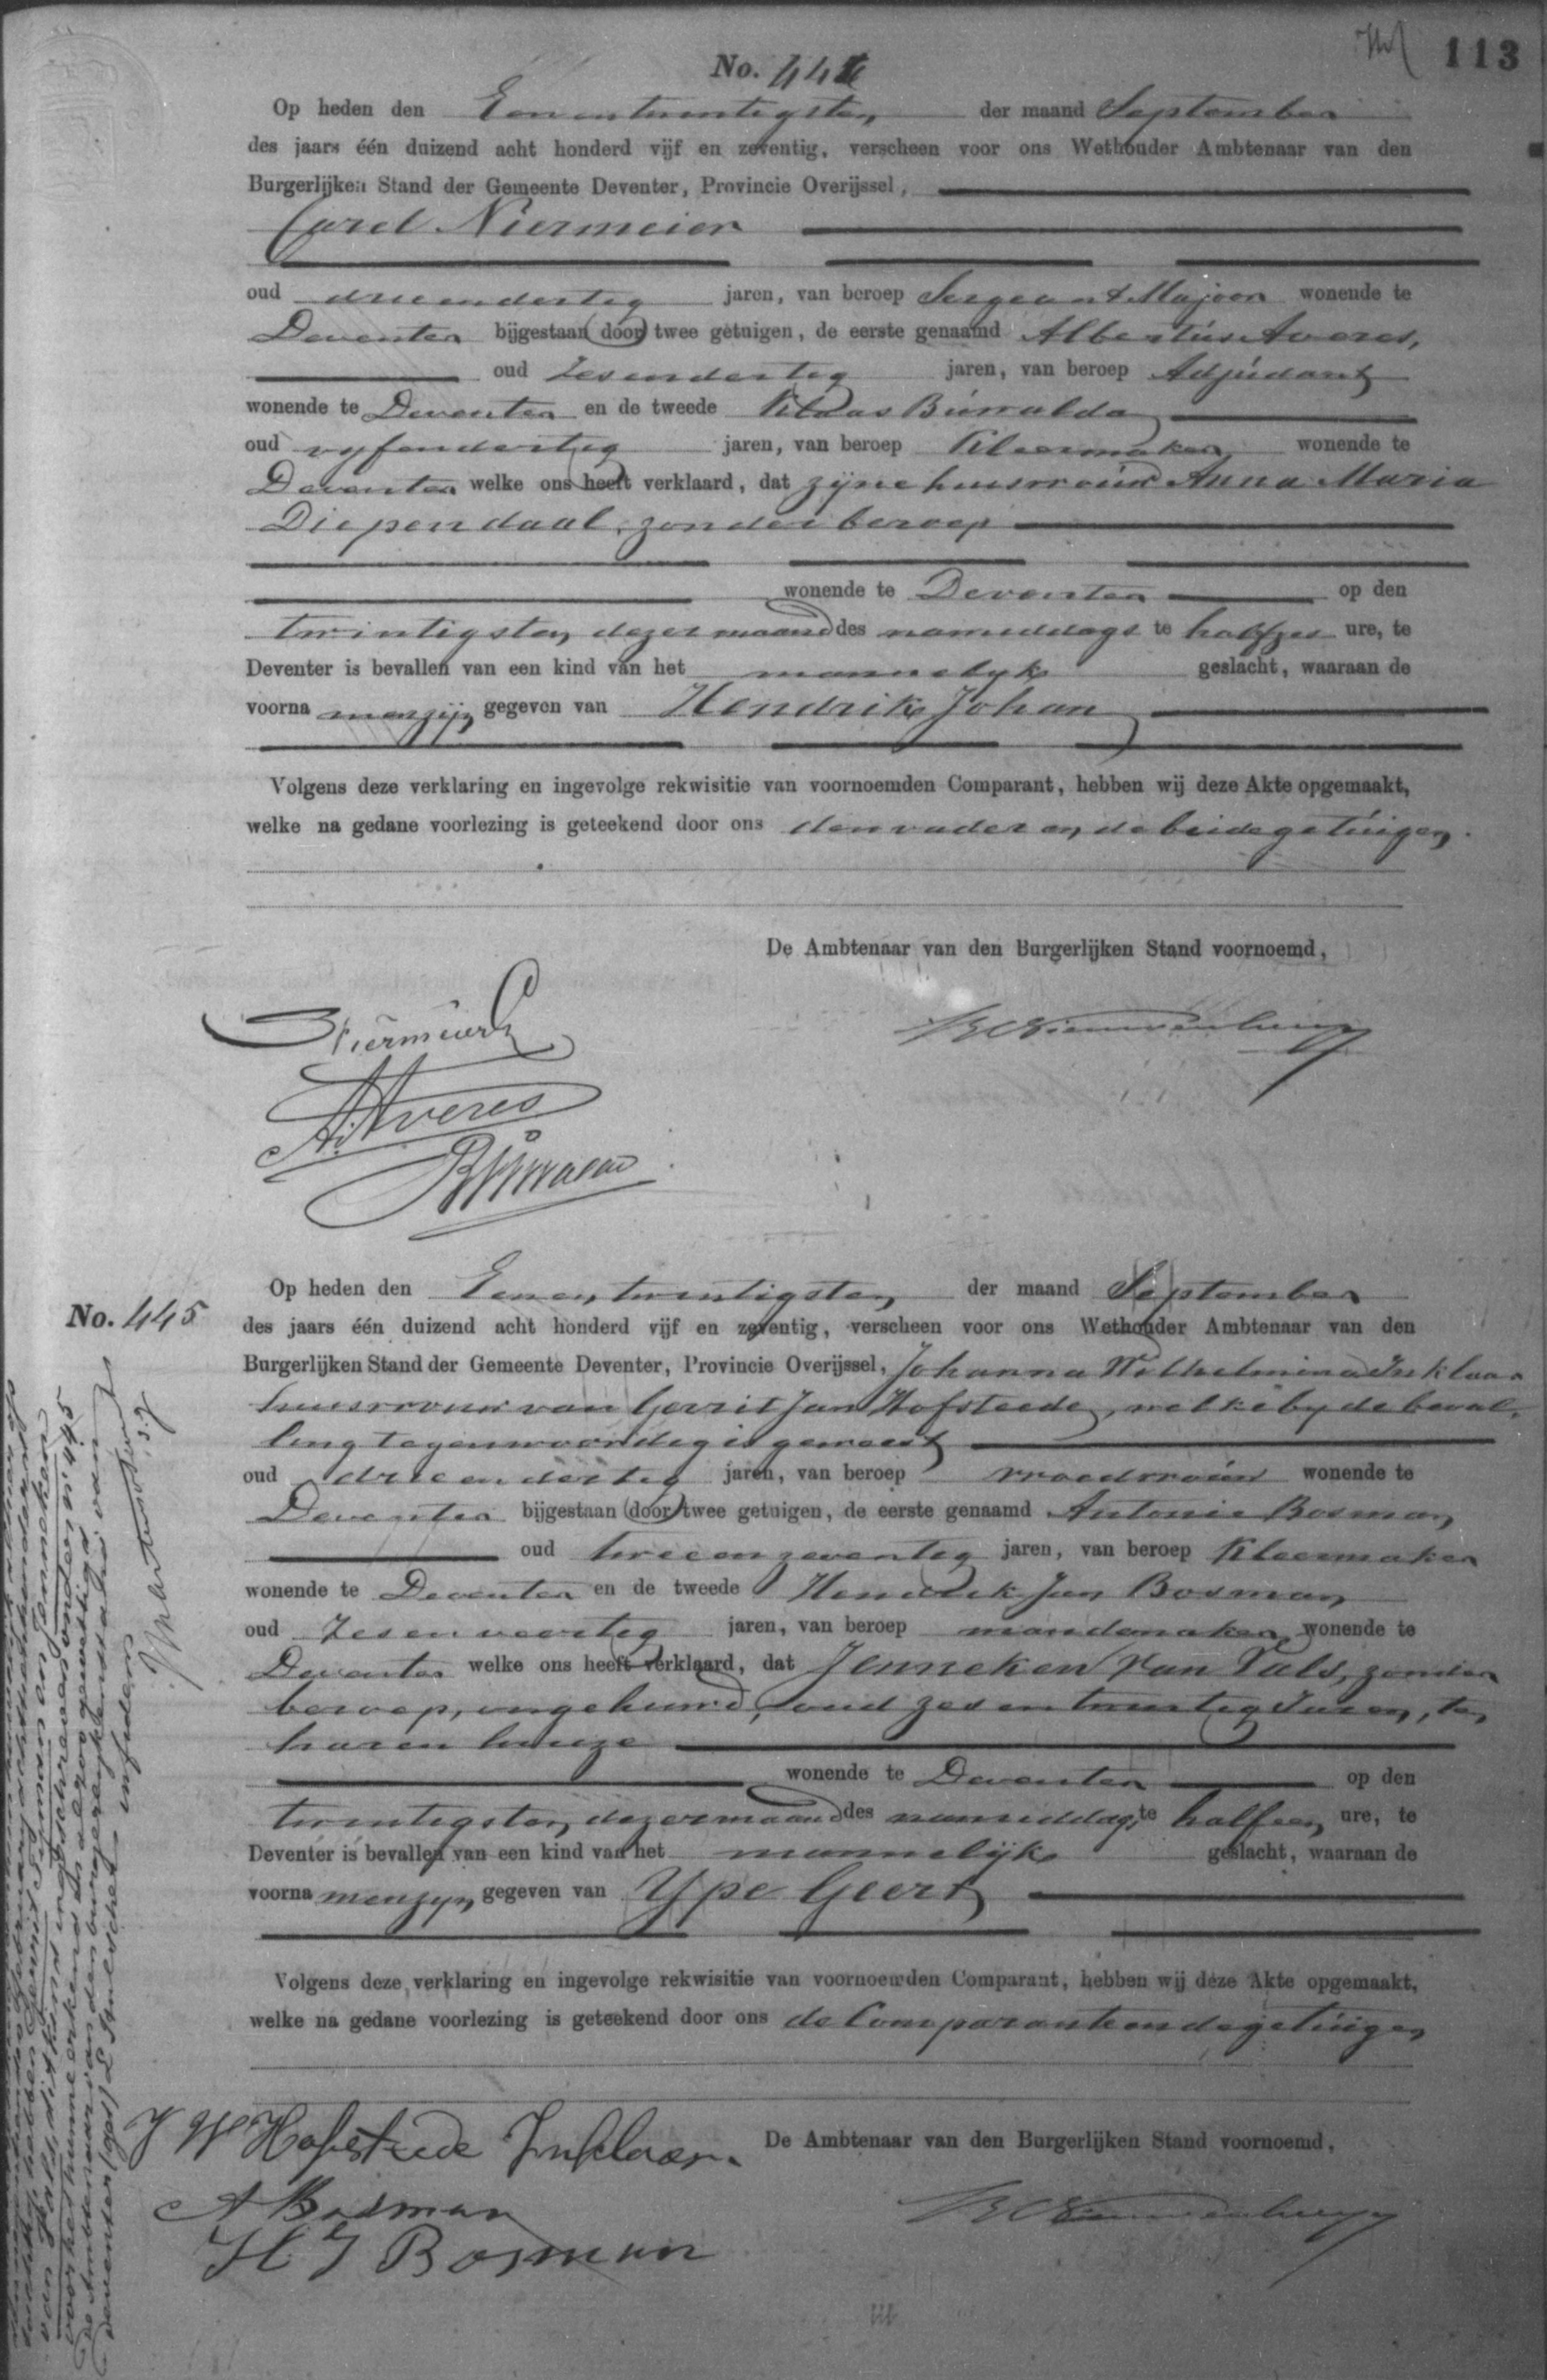 113
No. 444
Op heden den Eenentwintigsten der maand September
des jaars één duizend acht honderd vijf en zeventig, verscheen voor ons Wethouder Ambtenaar van den
Burgerlijken Stand der Gemeente Deventer, Provincie Overijssel,
Carel Niermeier
oud drieendertig jaren, van beroep Sergeant Majoor wonende te
Deventer bijgestaan door twee getuigen, de eerste genaamd Albertus Averes,
oud Zesendertig jaren, van beroep Adjudant
wonende te Deventer en de tweede Klaas Buwalda
oud vyfendertig jaren, van beroep Kleermaker wonende te
Deventer welke ons heeft verklaard, dat zijne huisvrouw Anna Maria
Diependaal, zonder beroep
wonende te Deventer op den
twintigsten dezer maand des namiddags te half zes ure, te
Deventer is bevallen van een kind van het mannelyk geslacht, waaraan de
voorna men zijn gegeven van Hendrik Johan
Volgens deze verklaring en ingevolge rekwisitie van voornoemden Comparant, hebben wij deze Akte opgemaakt,
welke na gedane voorlezing is geteekend door ons den vader en de beide getuigen.
De Ambtenaar van den Burgerlijken Stand voornoemd,
Niermeier
A. Averes
Buwalda
No. 445
Op heden den Eenentwintigsten der maand September
des jaars één duizend acht honderd vijf en zeventig, verscheen voor ons Wethouder Ambtenaar van den
Burgerlijken Stand der Gemeente Deventer, Provincie Overijssel, Johanna Wilhelmina Inklaar
huisvrouw van Gerrit Jan Hofsteede, welke by de beval,
ling tegenwoordig is geweest
oud drieendertig jaren, van beroep vroedvrouw wonende te
Deventer bijgestaan door twee getuigen, de eerste genaamd Antonie Bosman
oud tweeenzeventig jaren, van beroep Kleermaker
wonende te Deventer en de tweede Hendrik Jan Bosman
oud Zesenveertig jaren, van beroep mandemaker wonende te
Deventer welke ons heeft verklaard, dat Jenneken van Vals, zonder
beroep, ongehuwd, oud zesentwintig Jaren, ten
haren huize
wonende te Deventer op den
twintigsten dezer maand des namiddags te half een ure, te
Deventer is bevallen van een kind van het mannelijk geslacht, waaraan de
voorna men zyn gegeven van Ype Geert
Volgens deze verklaring en ingevolge rekwisitie van voornoemden Comparant, hebben wij deze Akte opgemaakt,
welke na gedane voorlezing is geteekend door ons de Comparante en de getuigen
De Ambtenaar van den Burgerlijken Stand voornoemd,
J W Hofsteede Inklaar
A Bosman
H J Bosman